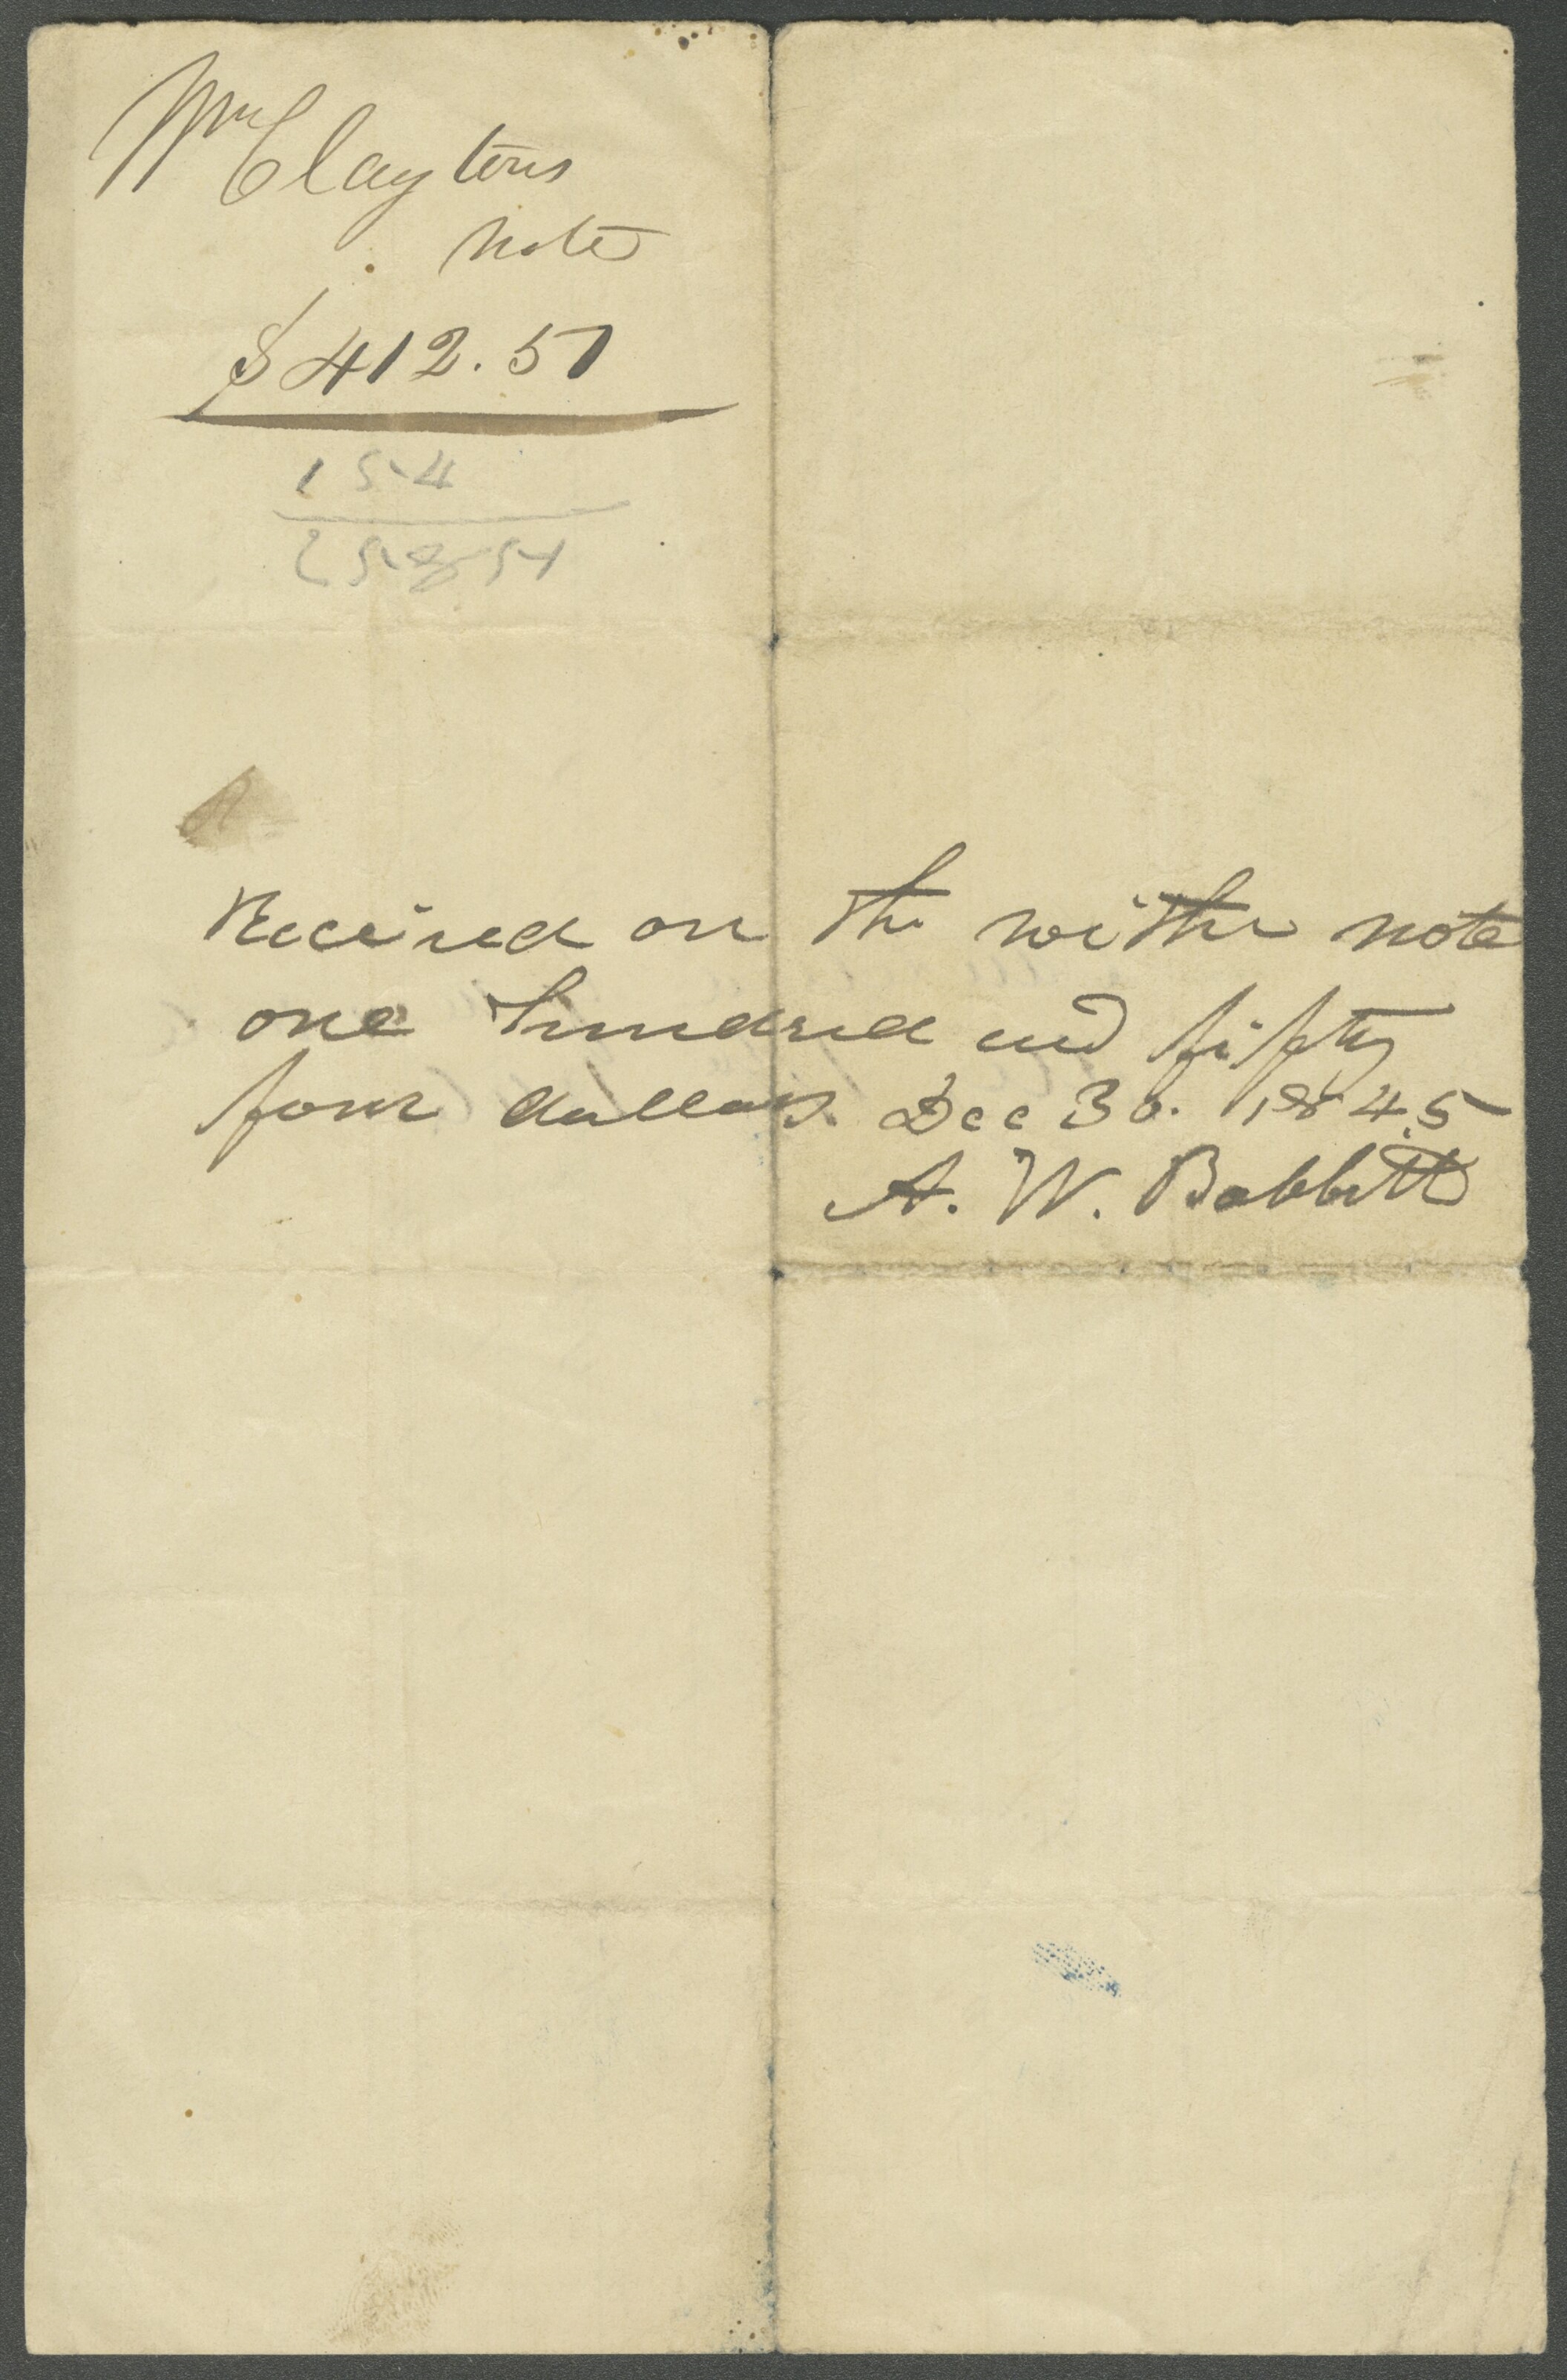 Wm Claytons
note
$412.51
154
258.51
Received on the within note
one hundred and fifty
four dollars. Dec 30. 1845
A. W. Babbitt